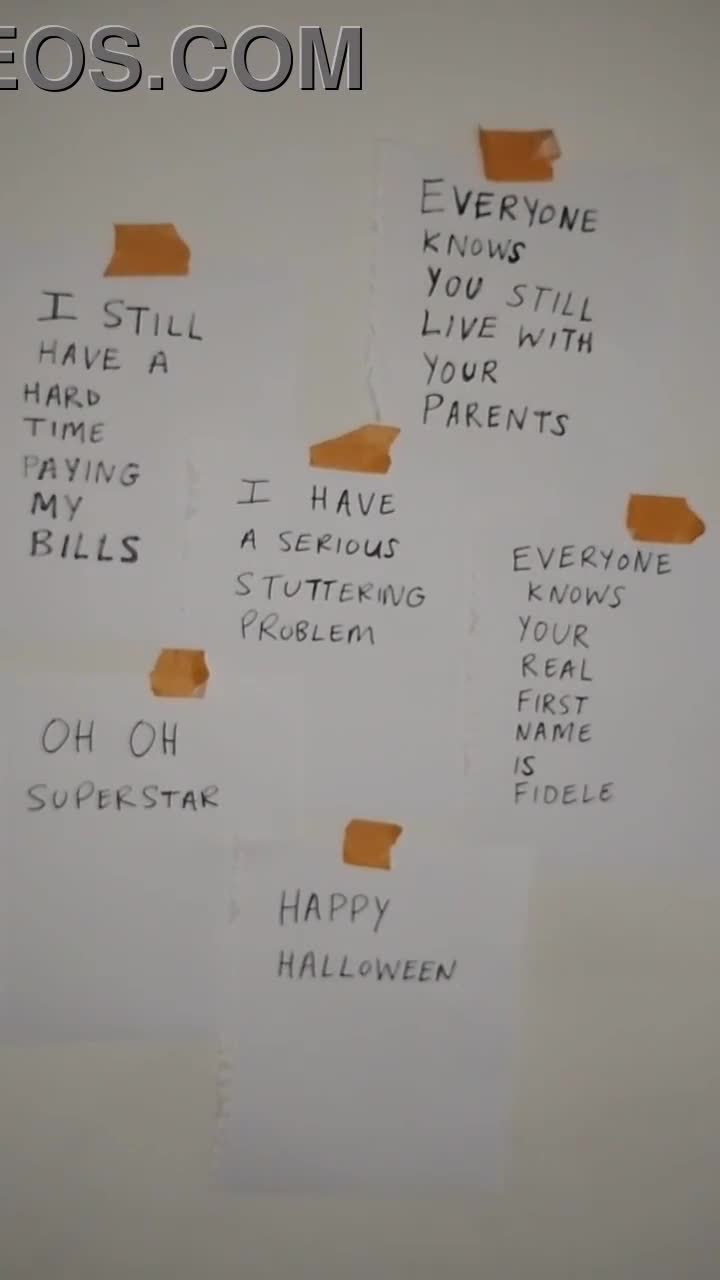 EOS.COM
EVERYONE
KNOWS
YOU STILL
LIVE WITH
YOUR
PARENTS
I STILL
HAVE A
HARD
TIME
PAYING
MY
BILLS
I HAVE
A SERIOUS
STUTTERING
PROBLEM
EVERYONE
KNOWS
YOUR
REAL
FIRST
NAME
IS
FIDELE
OH OH
SUPERSTAR
HAPPY
HALLOWEEN